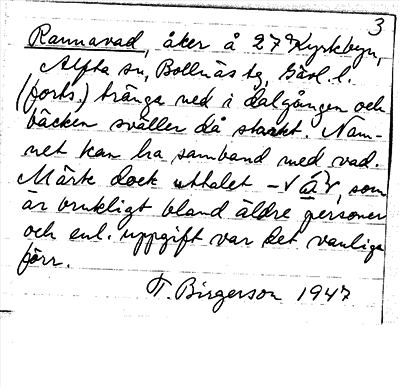 3
Rannavad, åker å 27 Kyrkbyn,
Alfta sn, Bollnäs tg, Gävl. l.
(forts.) tränga ned i dalgången och
bäcken sväller då starkt. Nam-
net kan ha samband med vad.
Märk dock uttalet -v, som
är brukligt bland äldre personer
och enl. uppgift var det vanliga
förr.
T. Birgerson 1947